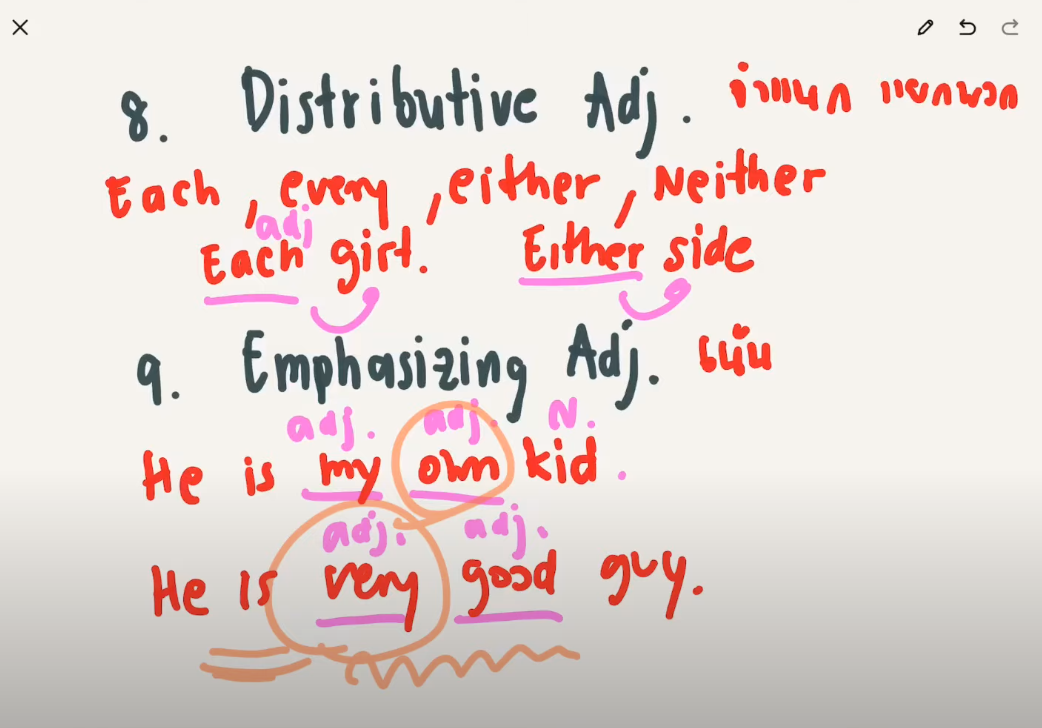 8. Distributive Adj. จำแนก แยกพวก
Each, every, either, Neither
adj
Each girt. Either side
9. Emphasizing Adj. เน้น
adj. adj. N.
He is my own kid.
adj. adj.
He is very good guy.